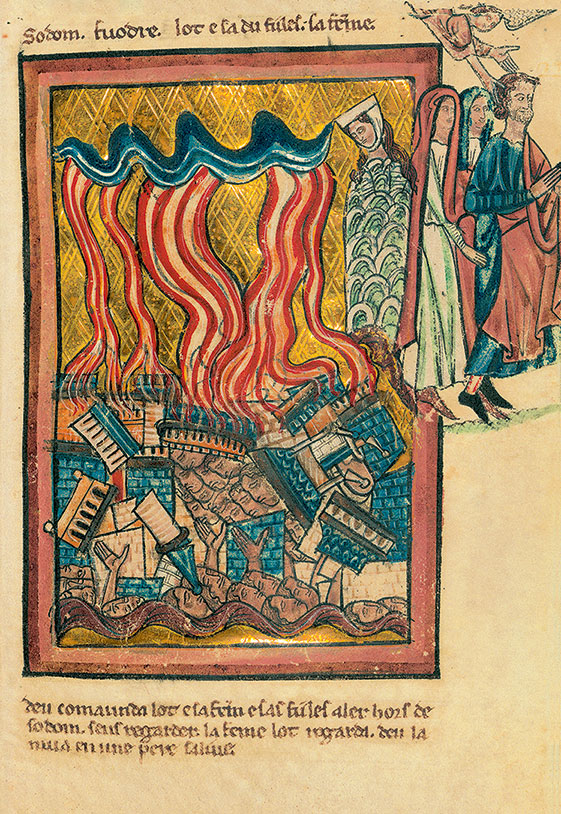 Sodom. fuodre. lot e sa du fules. sa feme.
deu comaunda lot e sa fem e sas fules aler hors de
sodom. seus regarder. la feme lot regarda. deu la
mua en une pere salius.